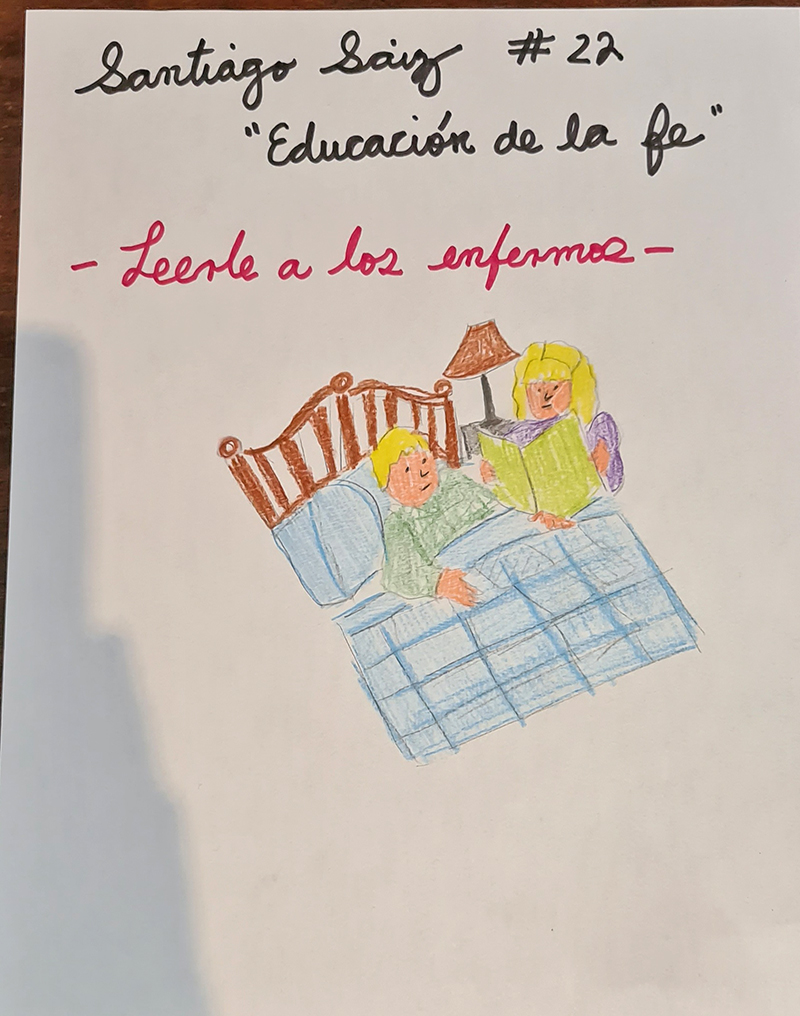 Santiago Sáiz # 22
"Educación de la fe"
- Leerle a los enfermos -